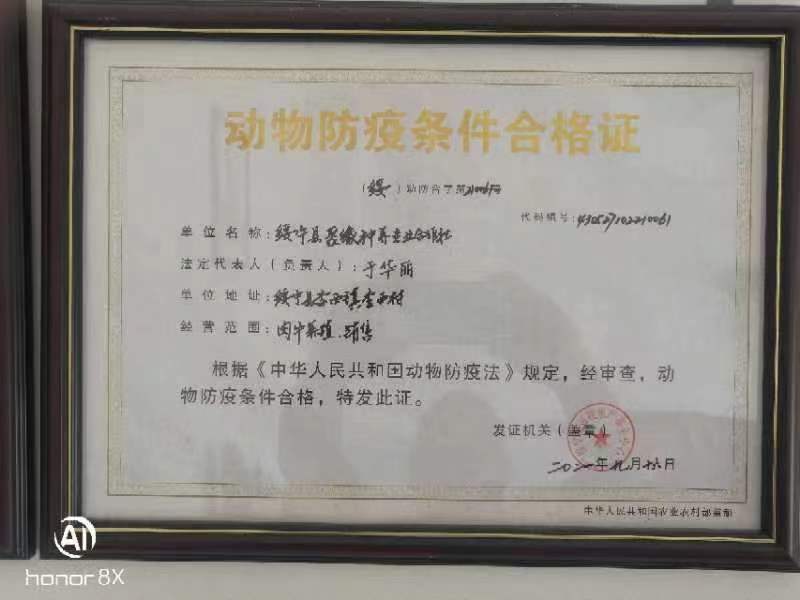 动物防疫条件合格证
(绥)动防合字第210061号
代码编号:430527102210061
单位名称:绥宁县 种养专业合作社
法定代表人(负责人):于华丽
单位地址:绥宁县李西镇李西村
经营范围:肉牛养殖、销售
根据《中华人民共和国动物防疫法》规定,经审查,动
物防疫条件合格,特发此证。
发证机关(盖章)
二〇二一年九月十六日
中华人民共和国农业农村部监制
AI
honor 8X